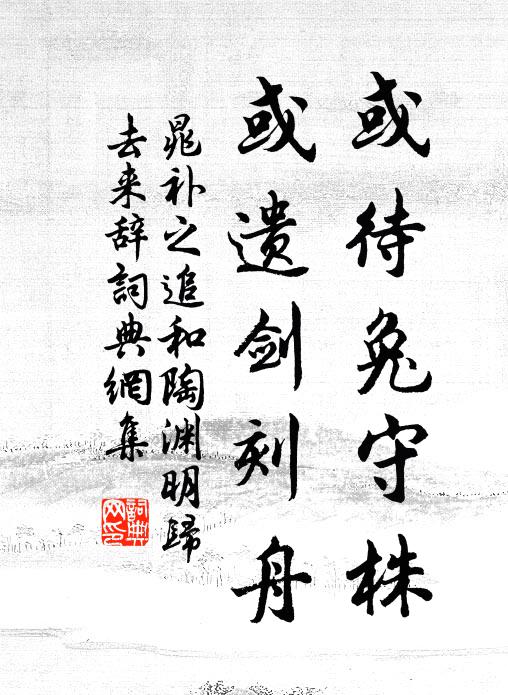 或待兔守株
或遗剑刻舟
晁补之追和陶渊明歸
去来辞詞典網集
詞典
网印